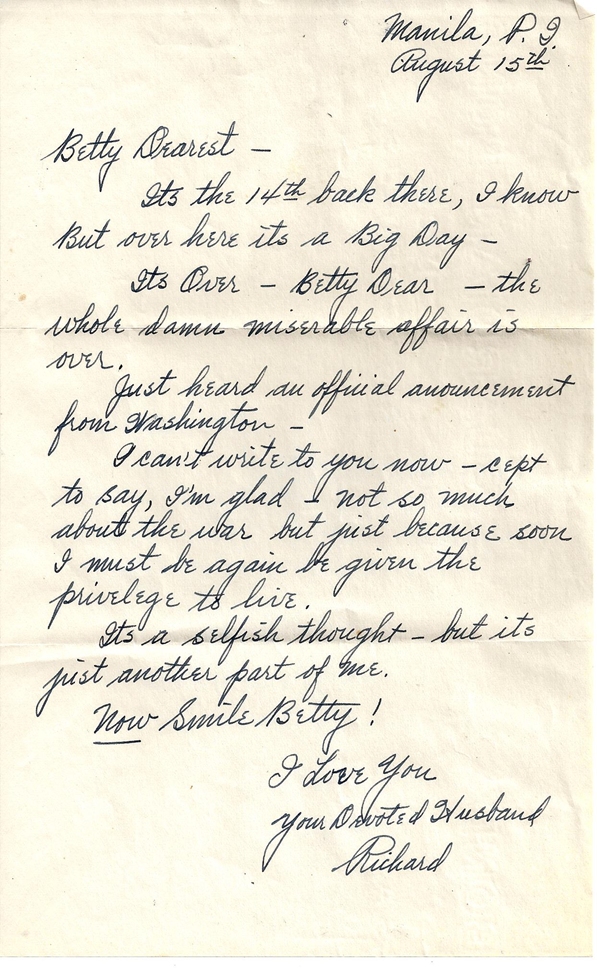 Manila, P. I.
August 15th
Betty Dearest –
Its the 14th back there, I know
But over here its a Big Day –
Its Over – Betty Dear – the
whole damn miserable affair is
over.
Just heard an official anouncement
from Washington –
I can't write to you now – cept
to say, I'm glad – not so much
about the war but just because soon
I must be again be given the
privelege to live.
Its a selfish thought – but its
just another part of me.
Now Smile Betty!
I Love You
Your Devoted Husband
Richard